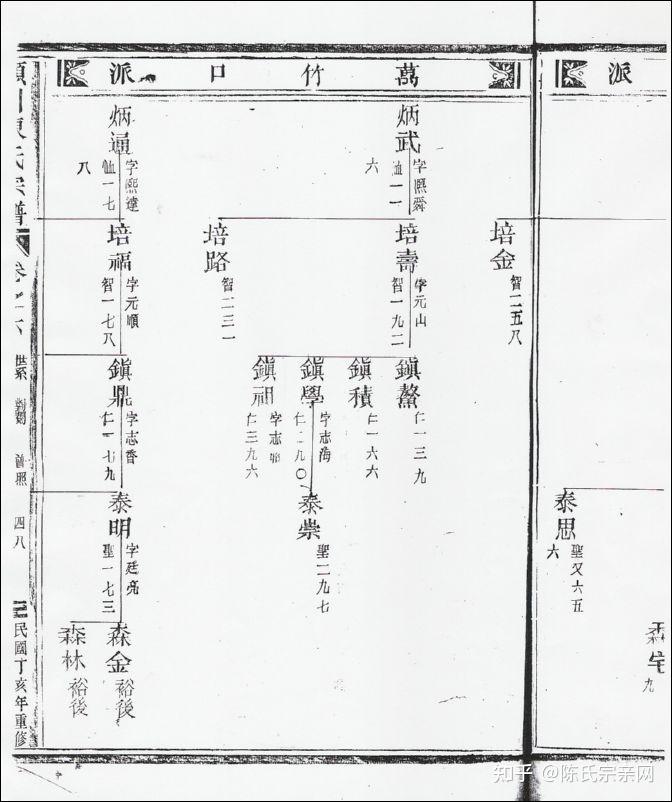 派
泰思
聖又六五
六
九
萬竹口派
培金
智二五八
炳武
字熙舜
六
培壽
字元山
智一九二
培路
智二三一
鎮鰲
仁一三九
鎮積
仁一六六
鎮學
字志海
鎮祖
仁三九六
泰崇
聖二九七
炳通
字熙達
八
培福
字元順
智一七八
鎮鼎
字志香
仁一七九
泰明
字廷亮
聖一七三
森金
裕後
森林
裕後
陳氏宗譜
四八
民國丁亥年重修
知乎 @陈氏宗亲网